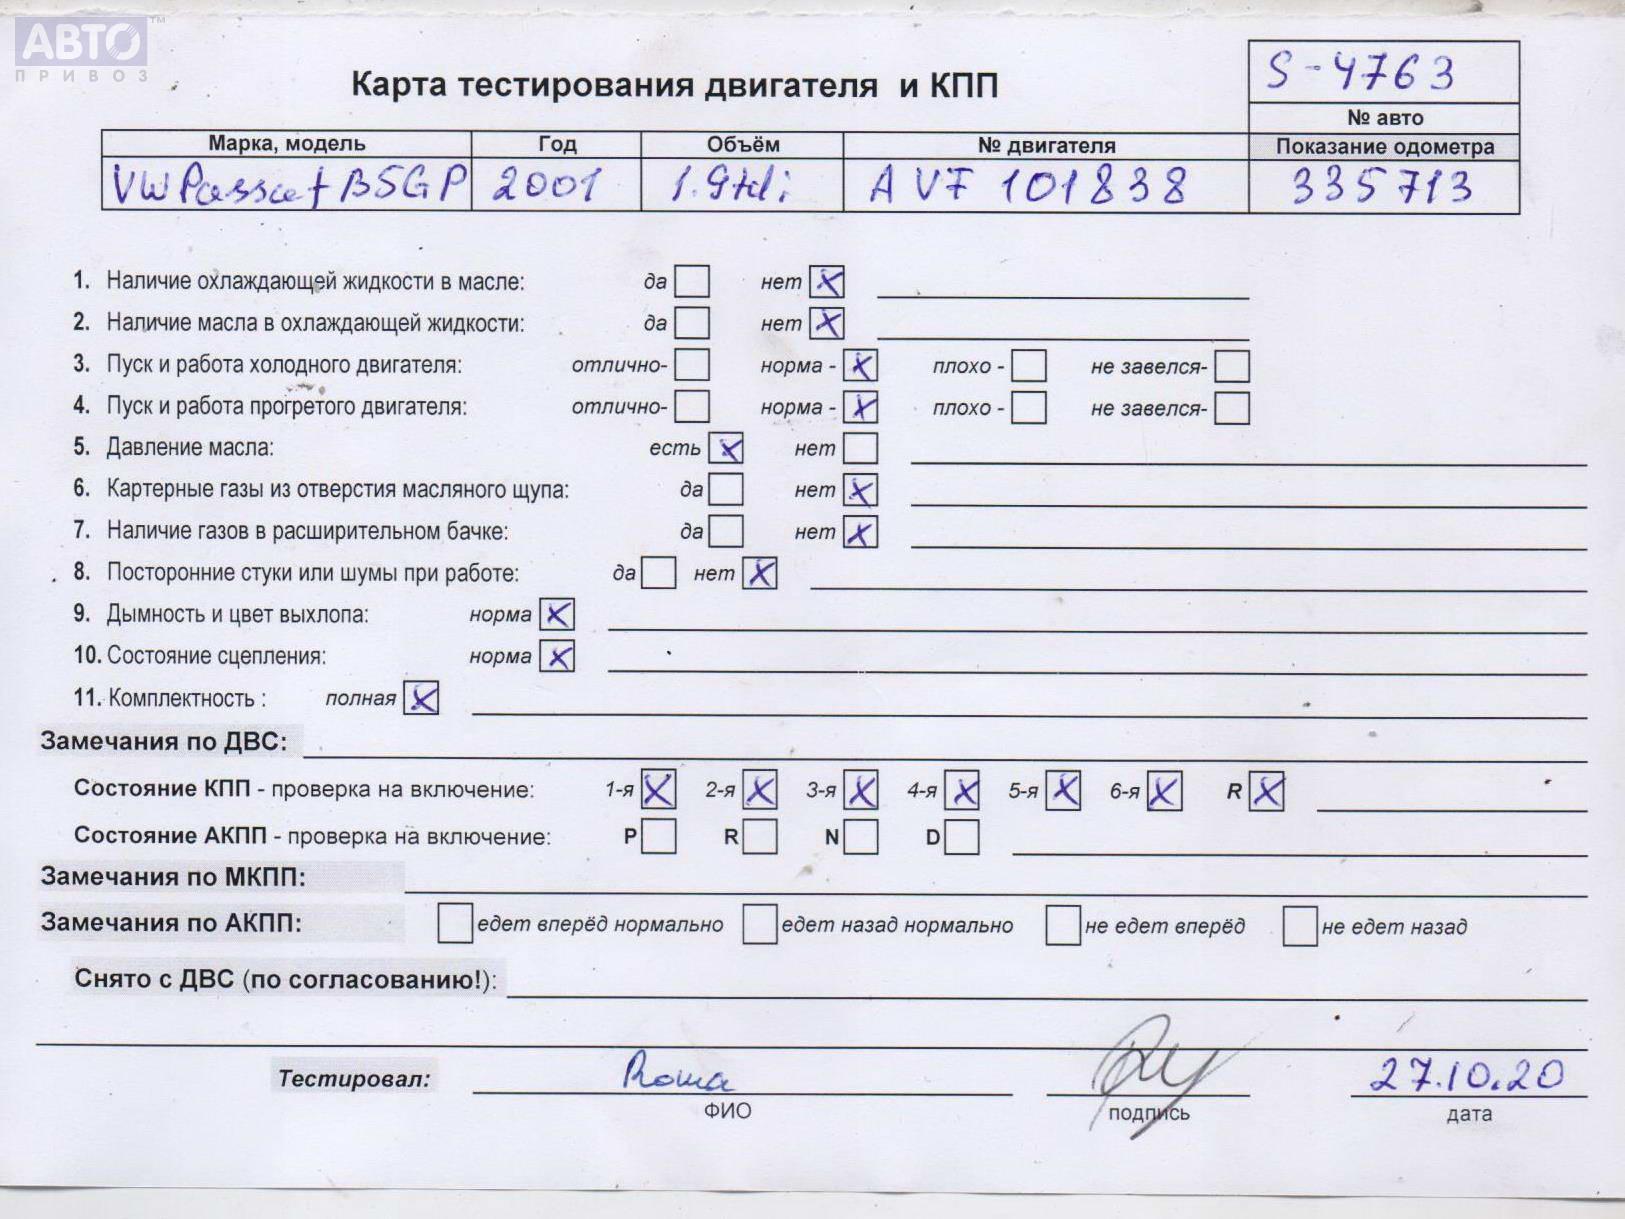 АВТО™
ПРИВОЗ
S-4763
Карта тестирования двигателя и КПП
№ авто
Марка, модель Год Объём № двигателя Показание одометра
VW Passat B5GP 2001 1.9tdi AVF 101838 335713
1. Наличие охлаждающей жидкости в масле: да нет X
2. Наличие масла в охлаждающей жидкости: да нет X
3. Пуск и работа холодного двигателя: отлично- норма - X плохо - не завелся-
4. Пуск и работа прогретого двигателя: отлично- норма - X плохо - не завелся-
5. Давление масла: есть X нет
6. Картерные газы из отверстия масляного щупа: да нет X
7. Наличие газов в расширительном бачке: да нет X
8. Посторонние стуки или шумы при работе: да нет X
9. Дымность и цвет выхлопа: норма X
10. Состояние сцепления: норма X
11. Комплектность : полная X
Замечания по ДВС:
Состояние КПП - проверка на включение: 1-я X 2-я X 3-я X 4-я X 5-я X 6-я X R X
Состояние АКПП - проверка на включение: P R N D
Замечания по МКПП:
Замечания по АКПП: едет вперёд нормально едет назад нормально не едет вперёд не едет назад
Снято с ДВС (по согласованию!):
Тестировал: Рома 27.10.20
ФИО подпись дата